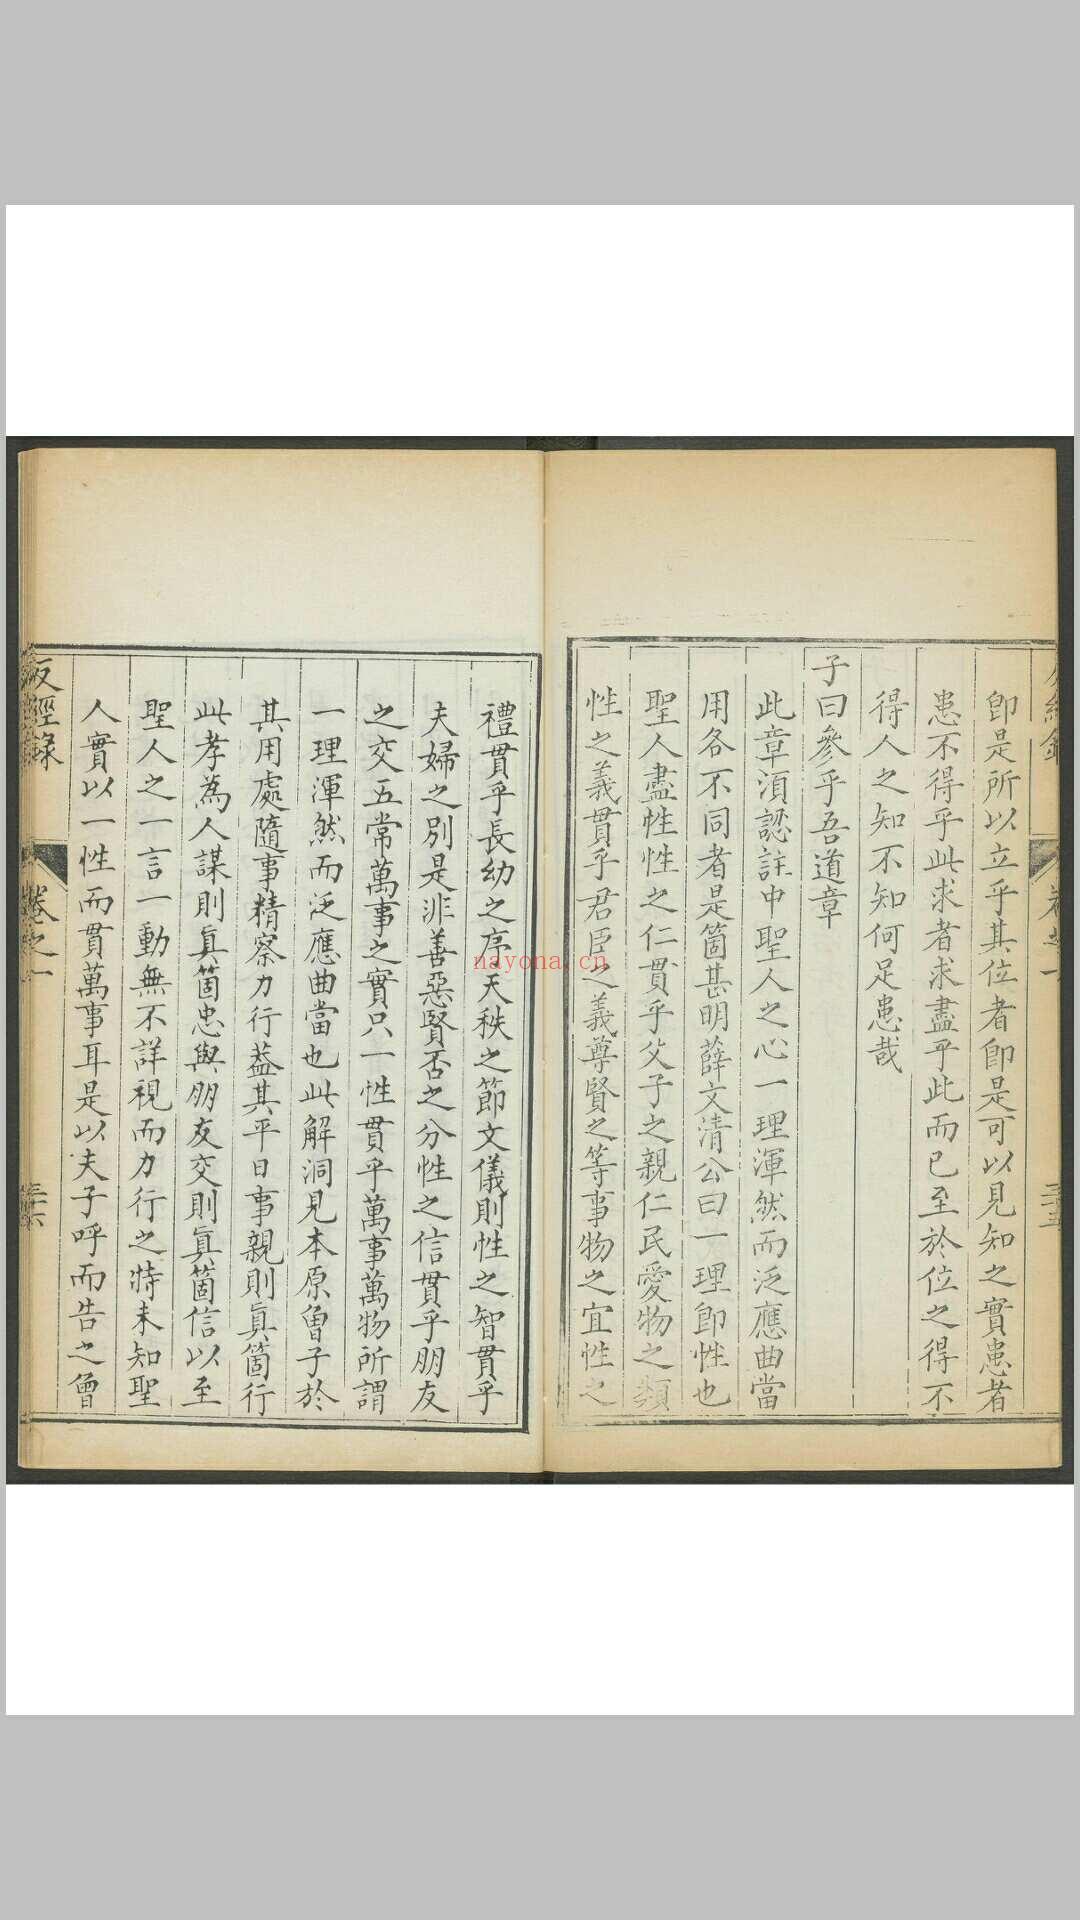 即是所以立乎其位者即是可以見知之實患者
患不得乎此求者求盡乎此而已至於位之得不
得人之知不知何足患哉
子曰參乎吾道章
此章湏認註中聖人之心一理渾然而泛應曲當
用各不同者是箇甚明薛文清公曰一理即性也
聖人盡性性之仁貫乎父子之親仁民愛物之類
性之義貫乎君臣之義尊賢之等事物之宜性之
禮貫乎長幼之序天秩之節文儀則性之智貫乎
夫婦之別是非善惡賢否之分性之信貫乎朋友
之交五常萬事之實只一性貫乎萬事萬物所謂
一理渾然而泛應曲當也此解洞見本原曾子於
其用處隨事精察力行葢其平日事親則眞箇行
此孝為人謀則眞箇忠與朋友交則眞箇信以至
聖人之一言一動無不詳視而力行之特未知聖
人實以一性而貫萬事耳是以夫子呼而告之曾
反經錄
卷之一
三十六
nayona.cn